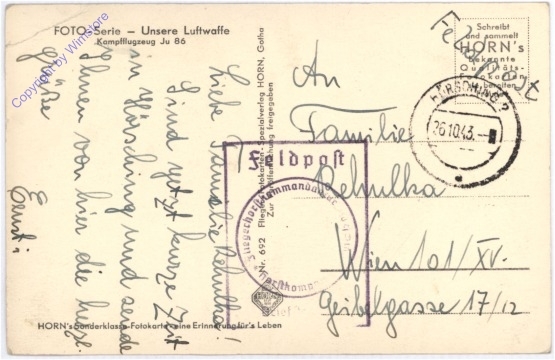 FOTO-Serie - Unsere Luftwaffe
Kampfflugzeug Ju 86
Liebe Familie Rehulka!
Sind jetzt kurze Zeit
in Hörsching und sende
Ihnen von hier die herzl.
Grüße
Ernst
Nr. 692 Flieger-Fotokarten-Spezialverlag HORN, Gotha
Zur Veröffentlichung freigegeben
HORN
Feldpost
Fliegerhorstkommandantur
Feldpost
Schreibt
und sammelt
HORN's
bekannte
Qualitäts-
Fotokarten
HÖRSCHING 2
26.10.43.
An
Familie
Rehulka
Wien 101/XV.
Geibelgasse 17/12
HORN's Sonderklasse-Fotokarte eine Erinnerung für's Leben
by Winstore